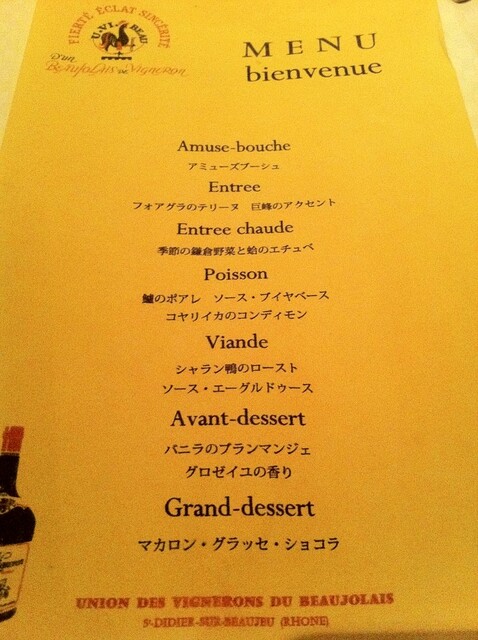 FIERTÉ ÉCLAT SINCÉRITÉ
U.V.I. BEAU.
D'un
Beaujolais de Vigneron
MENU
bienvenue
Amuse-bouche
アミューズブーシュ
Entree
フォアグラのテリーヌ　巨峰のアクセント
Entree chaude
季節の鎌倉野菜と蛤のエチュベ
Poisson
鱸のポアレ　ソース・ブイヤベース
コヤリイカのコンディモン
Viande
シャラン鴨のロースト
ソース・エーグルドゥース
Avant-dessert
バニラのブランマンジェ
グロゼイユの香り
Grand-dessert
マカロン・グラッセ・ショコラ
UNION DES VIGNERONS DU BEAUJOLAIS
St-DIDIER-SUR-BEAUJEU (RHONE)